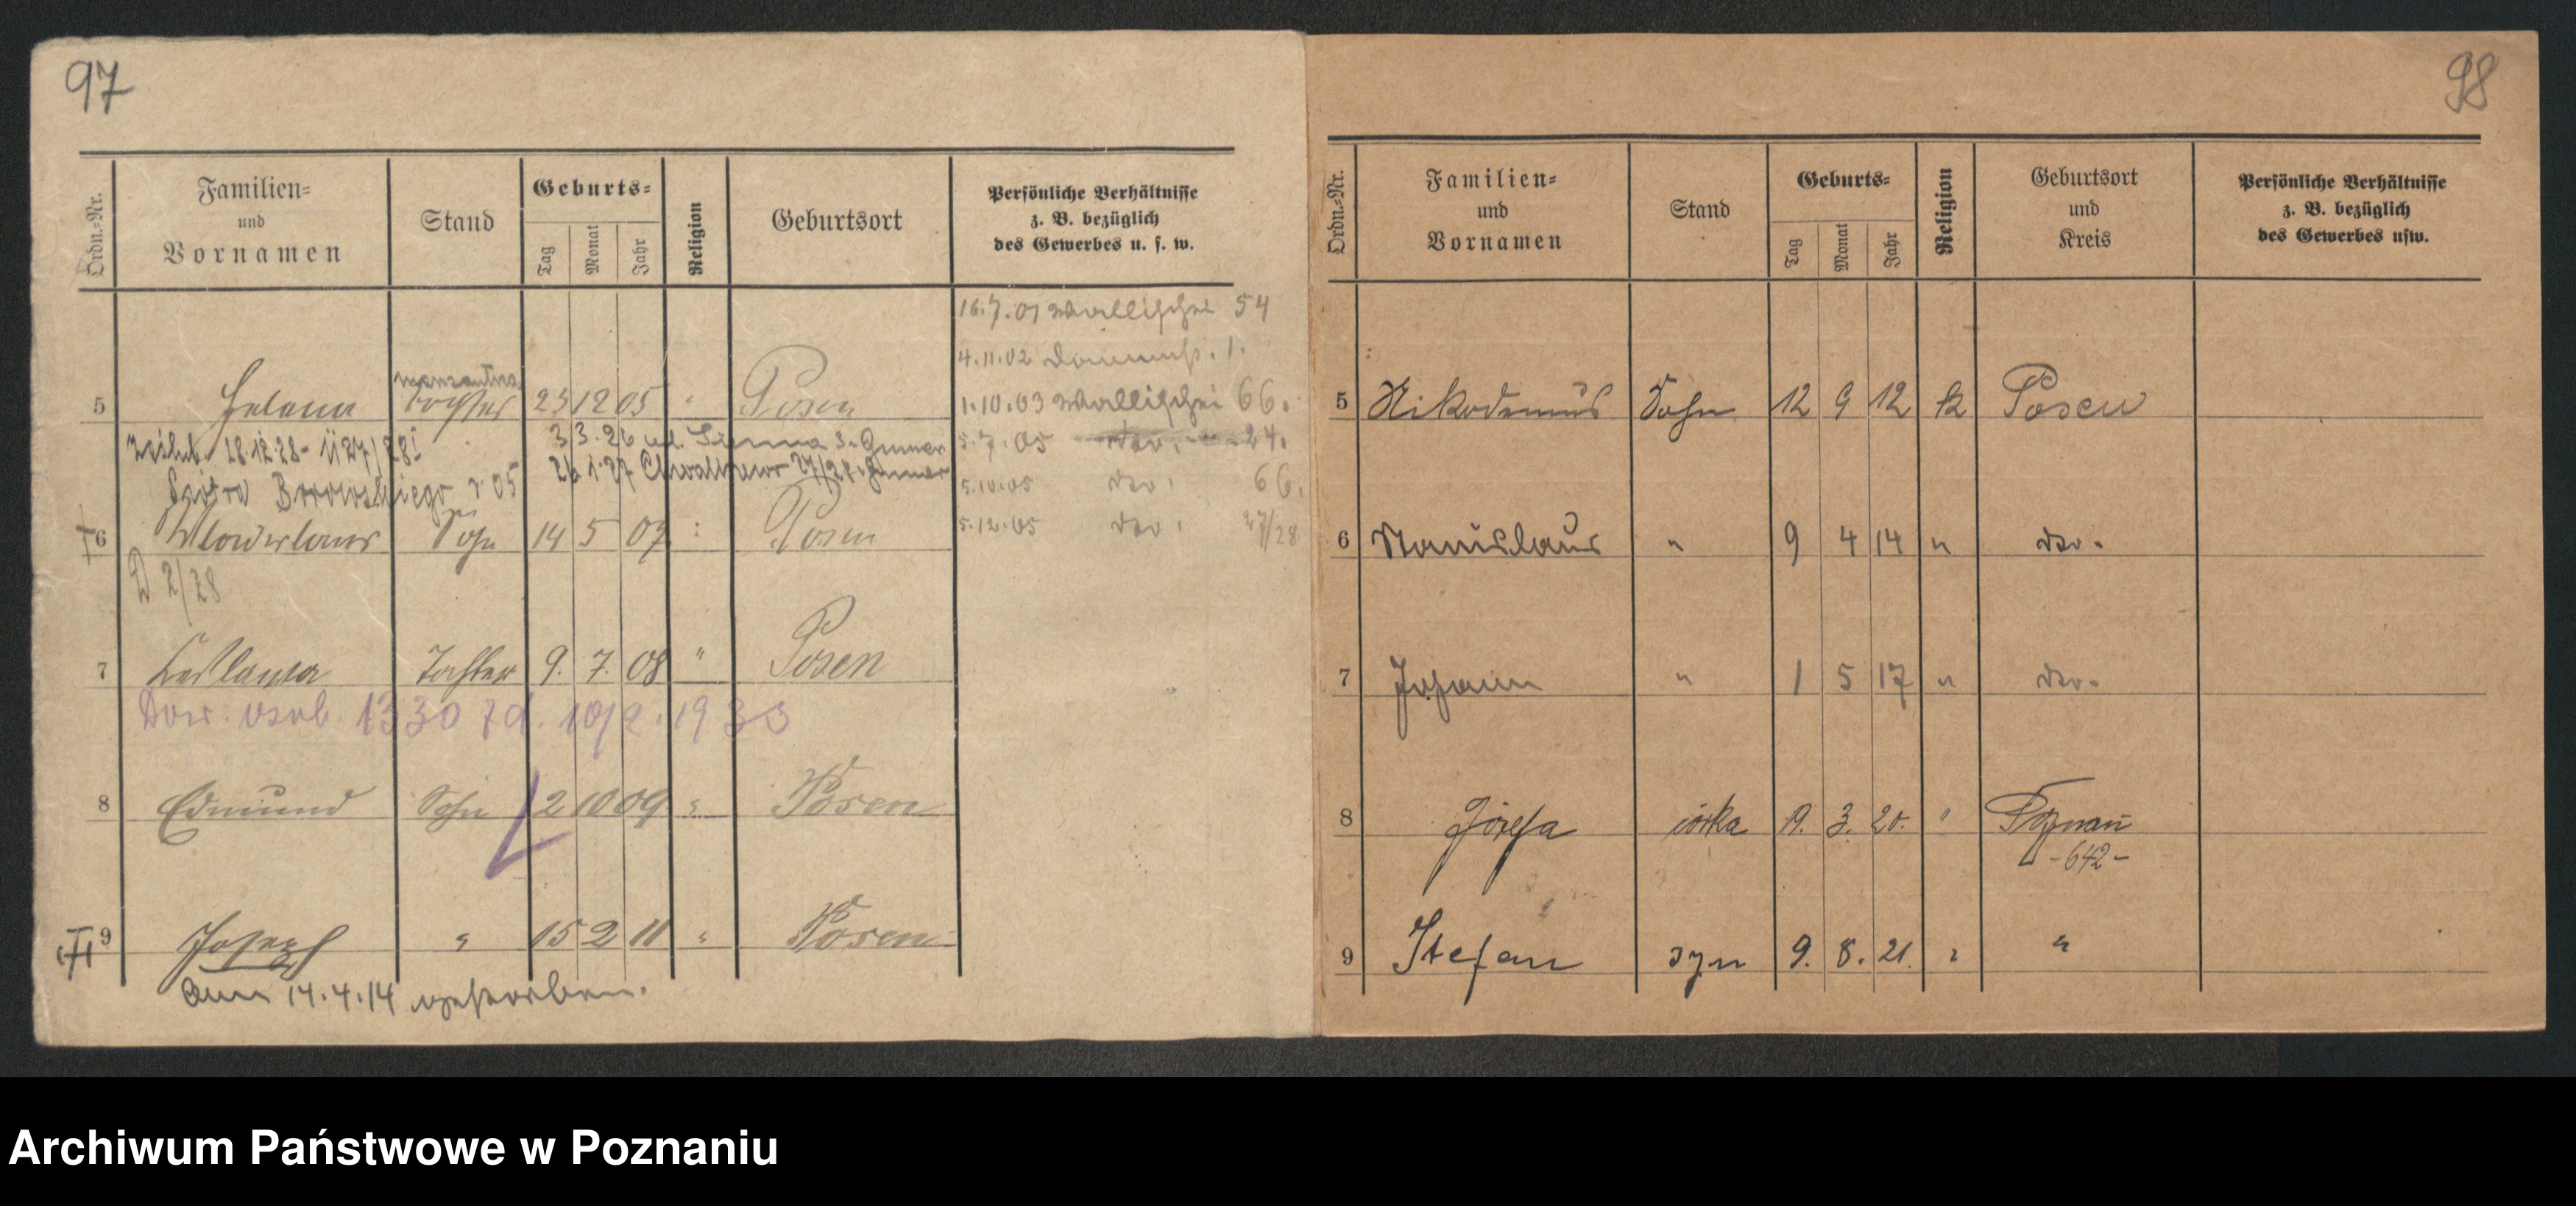 97
Ordn.-Nr.
Familien-
und
Vornamen
Stand
Geburts-
Tag
Monat
Jahr
Religion
Geburtsort
Persönliche Verhältnisse
z. B. bezüglich
des Gewerbes u. s. w.
16.7.01 Wallischei 54
4.11.02 1.
1.10.03 Wallischei 66.
5.7.05 dto. 24.
5.10.05 dto. 66.
5.12.05 dto. 27/28
5 Helena Tochter 23 12 05 " Posen
28.12.28 - 3.3.26 ul. 3
Borowskiego r. 05 26.1.27 Chwaliszewo 27/28
6 Sohn 14 5 07 : Posen
D 2/28
7 Tochter 9. 7. 08 " Posen
Dow. osob. 1330 10/2. 1930
8 Edmund Sohn 2 10 09 " Posen
9 Joseph " 15 2 11 " Posen
am 14.4.14 gestorben.
98
Ordn.-Nr.
Familien-
und
Vornamen
Stand
Geburts-
Tag
Monat
Jahr
Religion
Geburtsort
und
Kreis
Persönliche Verhältnisse
z. B. bezüglich
des Gewerbes usw.
5 Nikodemus Sohn 12 9 12 k Posen
6 Stanislaus " 9 4 14 " dto.
7 Johann " 1 5 17 " dto.
8 Józefa córka 19. 3. 20. " Poznań
-642-
9 Stefan syn 9. 8. 21. " "
Archiwum Państwowe w Poznaniu